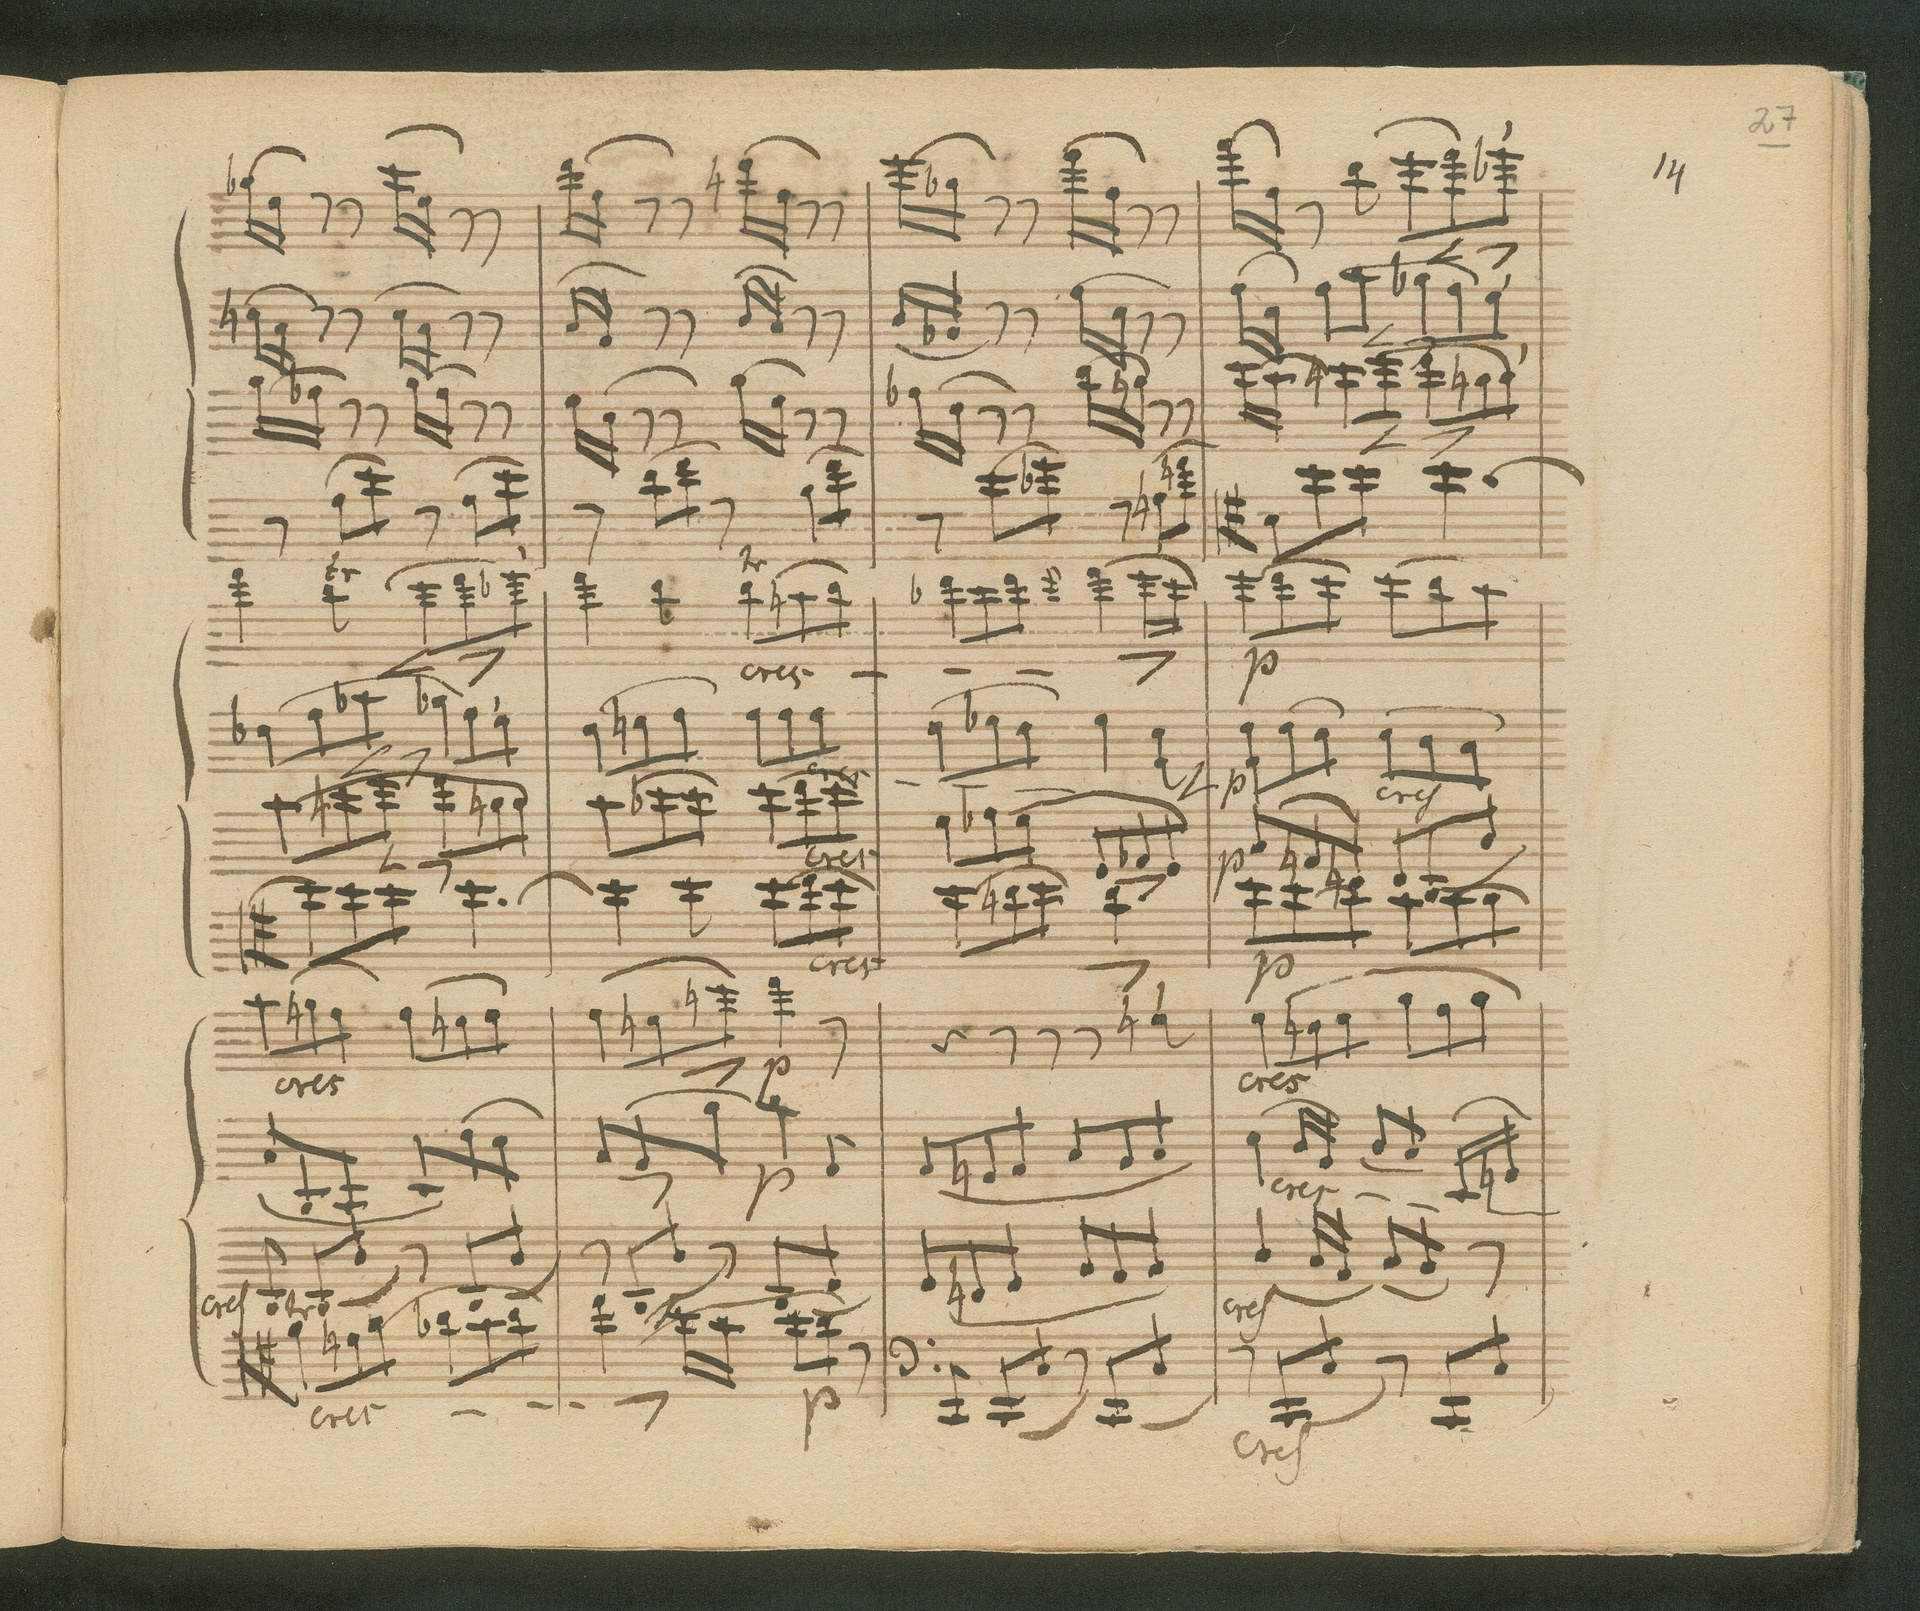 27
14
tr
tr
cres
p
p
cresc
cres
p
cres
p
cres
p
cres
p
cres
p
cres
cres
cres
cres
p
cres